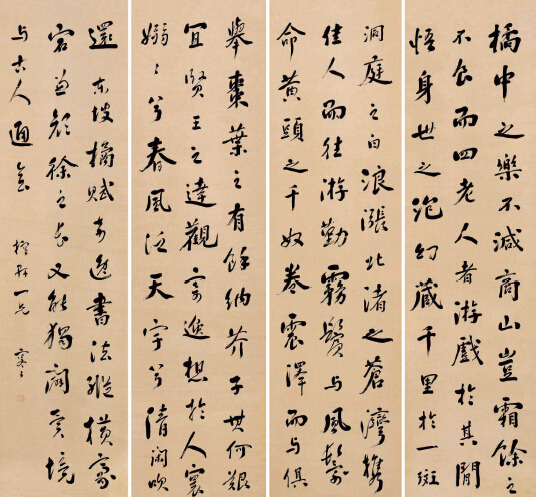 橘中之樂不減商山豈霜餘之
不食而四老人者游戲於其間
悟身世之泡幻藏千里於一斑
洞庭之白浪漲北渚之蒼灣攜
佳人而往游勤霧鬢与風鬟
命黃頭之千奴卷震澤而与俱
舉棗葉之有餘納芥子其何艱
宜賢王之達觀寄逸想於人寰
嫋〻兮春風泛天宇兮清閑吹
還 東坡橘賦奇逸書法縱橫豪
宕兼顏徐之長又能獨闢異境
与古人通 一兄